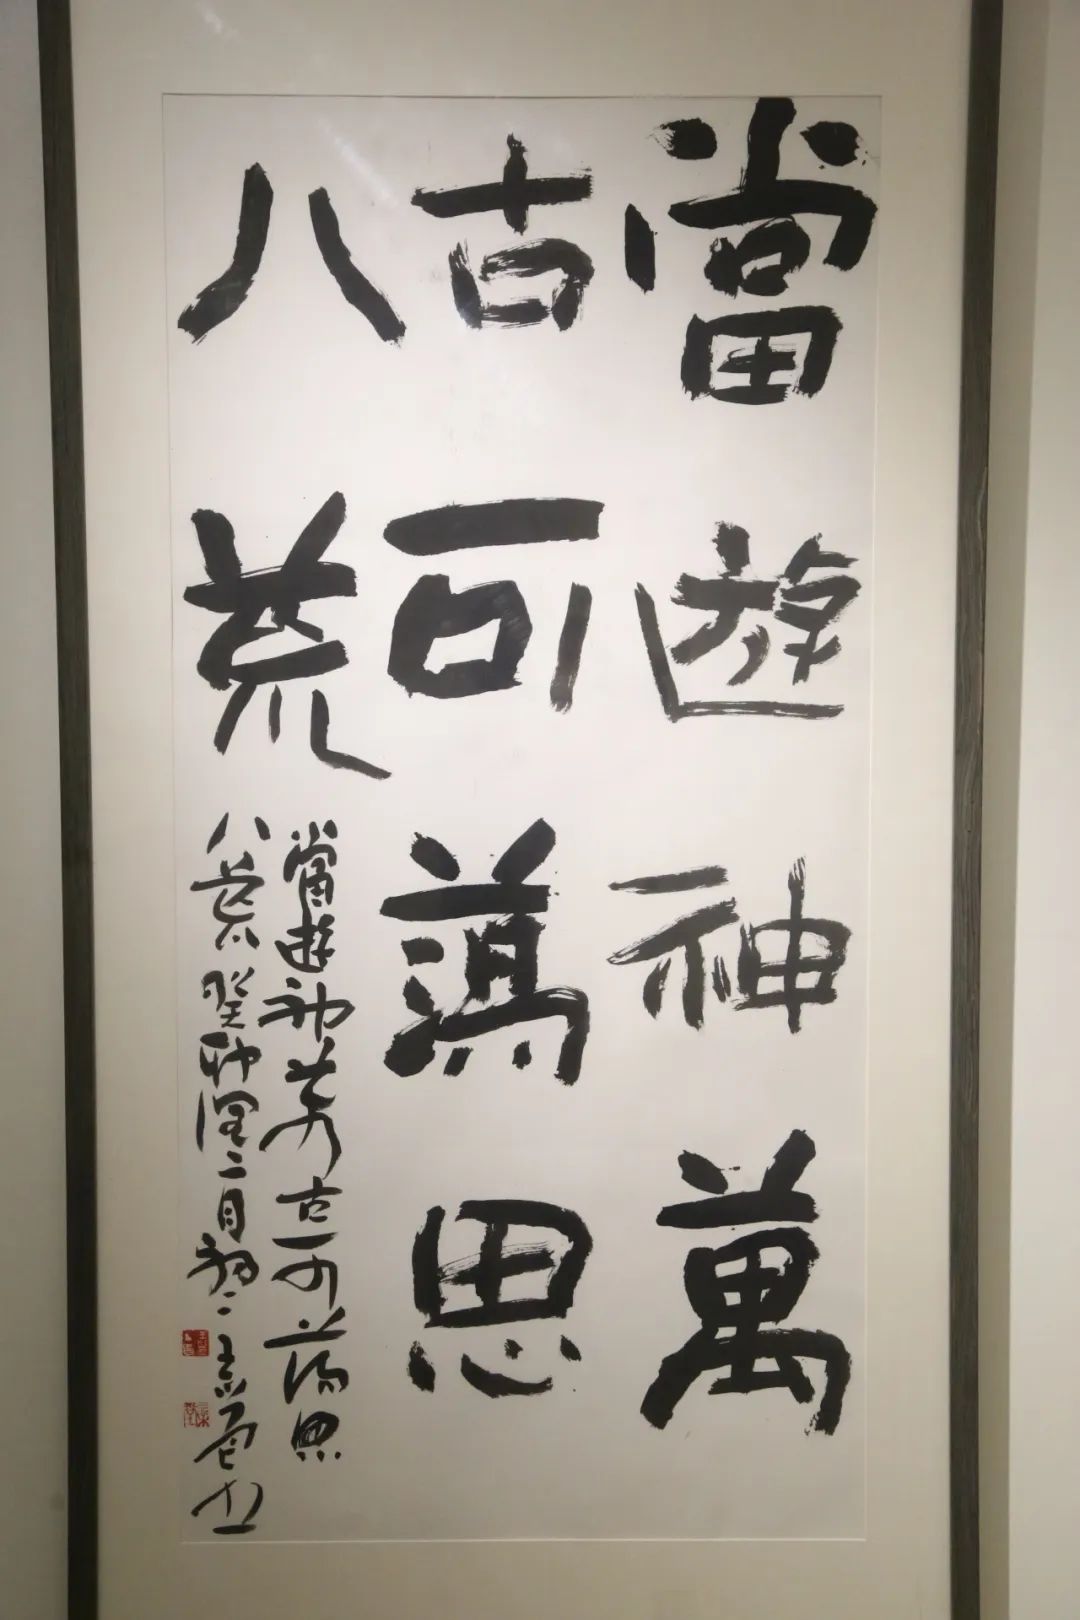 當遊神萬
古可蕩思
八荒
當遊神萬古可蕩思
八荒癸卯閏二月初二